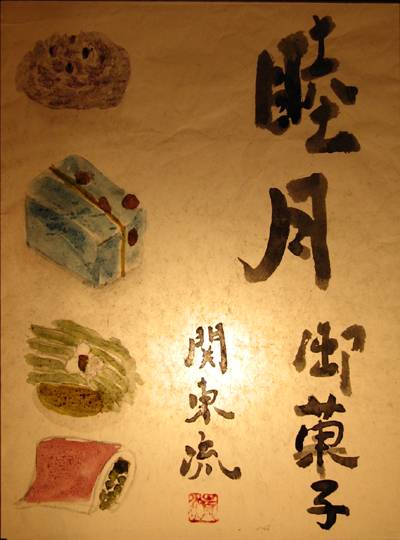 睦月
御菓子
関東流